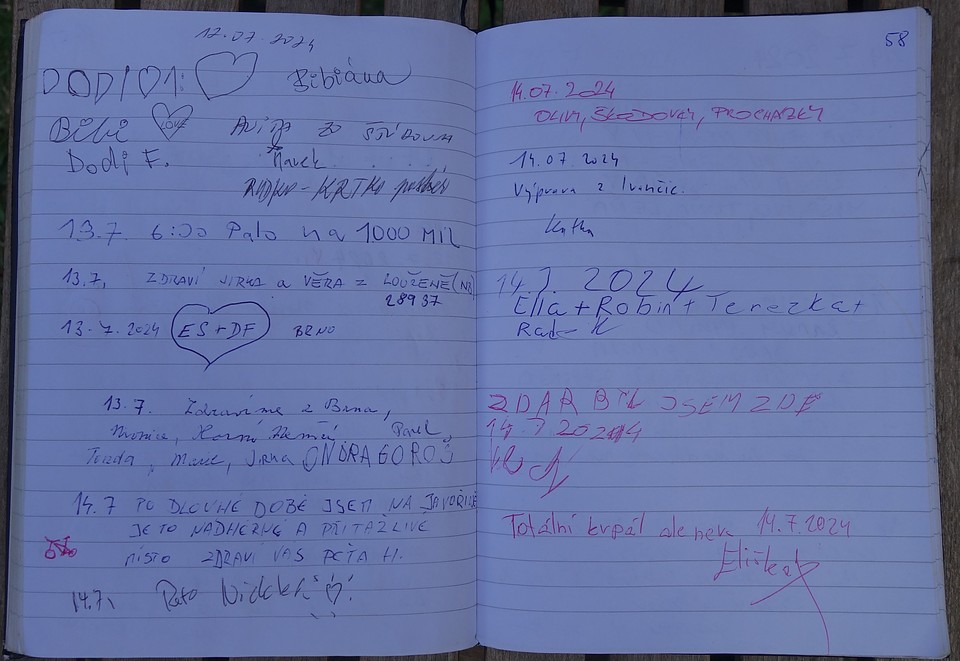 12.07.2024
DODI 01: Bibiána
Bibi LOVE
Dodi F. Marek
13.7. 6:30 Palo na 1000 MIL
13.7. ZDRAVÍ JIRKA a VĚRA z LOUŽENĚ (NB)
28937
13.7.2024 ES + DF BRNO
13.7. Zdravíme z Brna,
Pavel
Marek, Jirka ONDRA GOROŠ
14.7 PO DLOUHÉ DOBĚ JSEM NA JAVOŘICI
JE TO NÁDHERNÉ A PŘITAŽLIVÉ
MÍSTO ZDRAVÍ VÁS PEŤA H.
14.7.
58
14.07.2024
OLIVY, ŠKODOVKY, PROCHÁZKY
14.07 2024
Výprava z Ivančic.
Katka
14.7. 2024
Ella + Robin + Terezka +
Radek K
ZDAR BYL JSEM ZDE
14.7 2024
Totální krpál ale neva 14.7.2024
Eliška